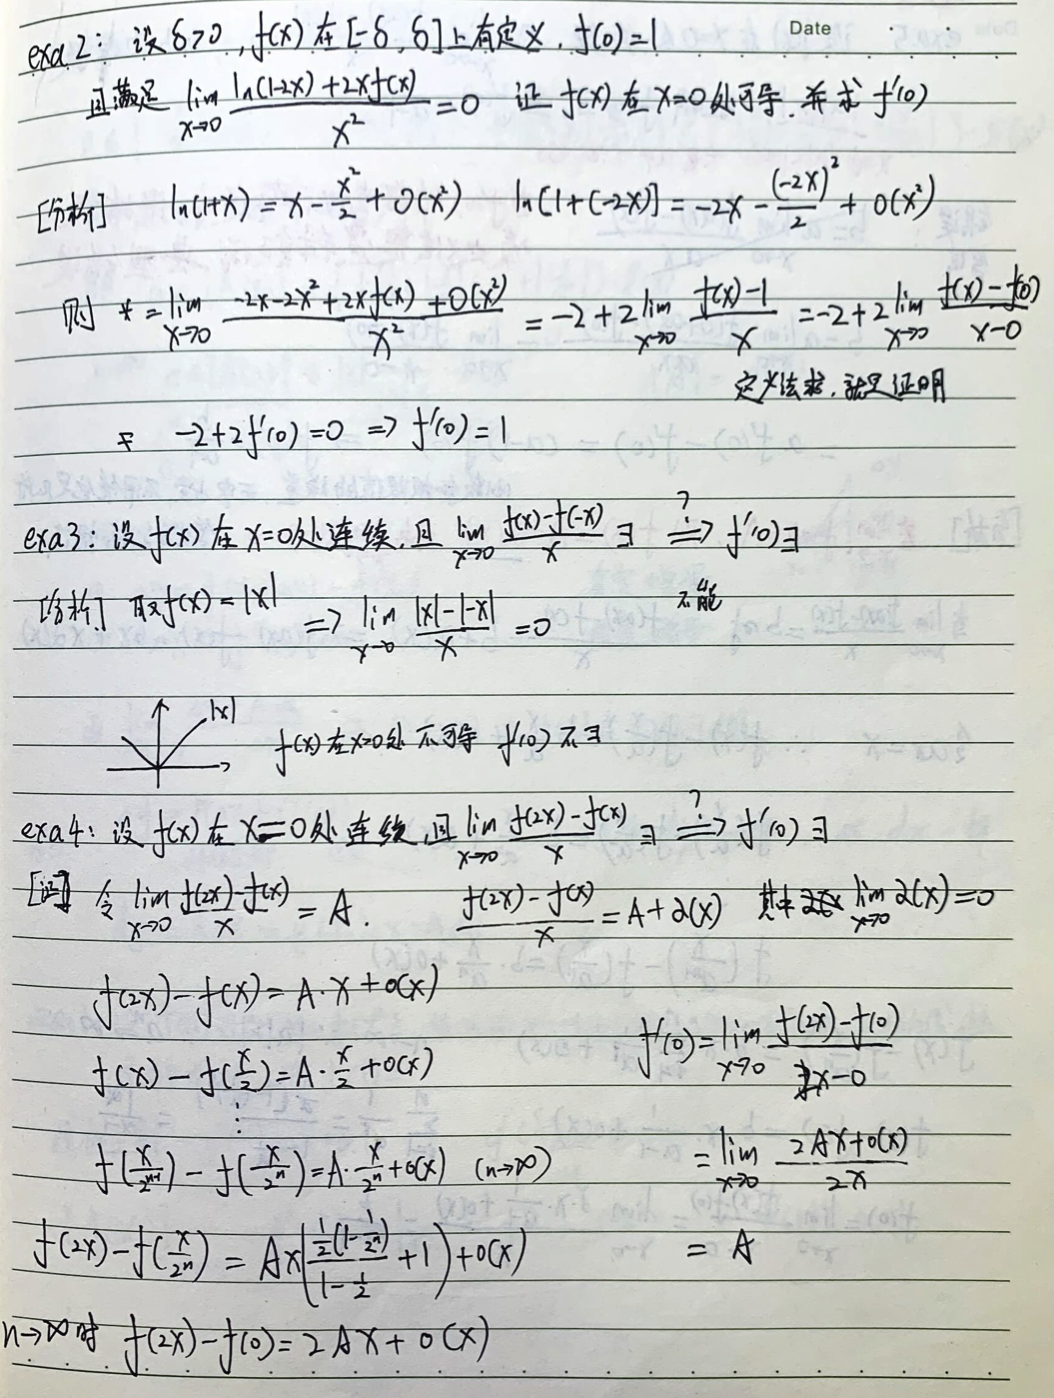 Date
exa2: 设 δ>0, f(x) 在 [-δ, δ] 上有定义. f(0)=1
且满足 lim_{x→0} \frac{ln(1-2x)+2xf(x)}{x²} = 0 证 f(x) 在 x=0 处可导. 并求 f'(0)
[分析] ln(1+x) = x - \frac{x²}{2} + o(x²) ln[1+(-2x)] = -2x - \frac{(-2x)²}{2} + o(x²)
则 * = lim_{x→0} \frac{-2x-2x²+2xf(x)+o(x²)}{x²} = -2+2lim_{x→0} \frac{f(x)-1}{x} = -2+2lim_{x→0} \frac{f(x)-f(0)}{x-0}
定义法求. 就是证明
-2+2f'(0)=0 ⇒ f'(0)=1
exa3: 设 f(x) 在 x=0处连续, 且 lim_{x→0} \frac{f(x)-f(-x)}{x} ∃ ?⇒ f'(0)∃
[分析] 取 f(x) = |x| ⇒ lim_{x→0} \frac{|x|-|-x|}{x} = 0 不能
|x|
f(x) 在x=0处 不可导 f'(0) 不∃
exa4: 设 f(x) 在 x=0处 连续, 且 lim_{x→0} \frac{f(2x)-f(x)}{x} ∃ ?⇒ f'(0) ∃
[证] 令 lim_{x→0} \frac{f(2x)-f(x)}{x} = A. \frac{f(2x)-f(x)}{x} = A+α(x) 其中 lim_{x→0} α(x)=0
f(2x)-f(x) = A·x+o(x)
f(x)-f(\frac{x}{2}) = A·\frac{x}{2}+o(x)
⋮
f(\frac{x}{2^{n-1}})-f(\frac{x}{2^n}) = A·\frac{x}{2^n}+o(x) (n→∞)
f(2x)-f(\frac{x}{2^n}) = Ax(\frac{\frac{1}{2}(1-\frac{1}{2^n})}{1-\frac{1}{2}}+1)+o(x)
n→∞时 f(2x)-f(0) = 2Ax+o(x)
f'(0) = lim_{x→0} \frac{f(2x)-f(0)}{2x-0}
= lim_{x→0} \frac{2Ax+o(x)}{2x}
= A